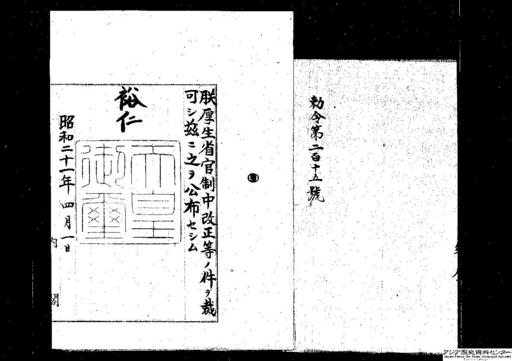 勅令第二百十五號
朕厚生省官制中改正等ノ件ヲ裁
可シ茲ニ之ヲ公布セシム
裕仁
天皇御璽
昭和二十一年四月一日
内閣
アジア歴史資料センター